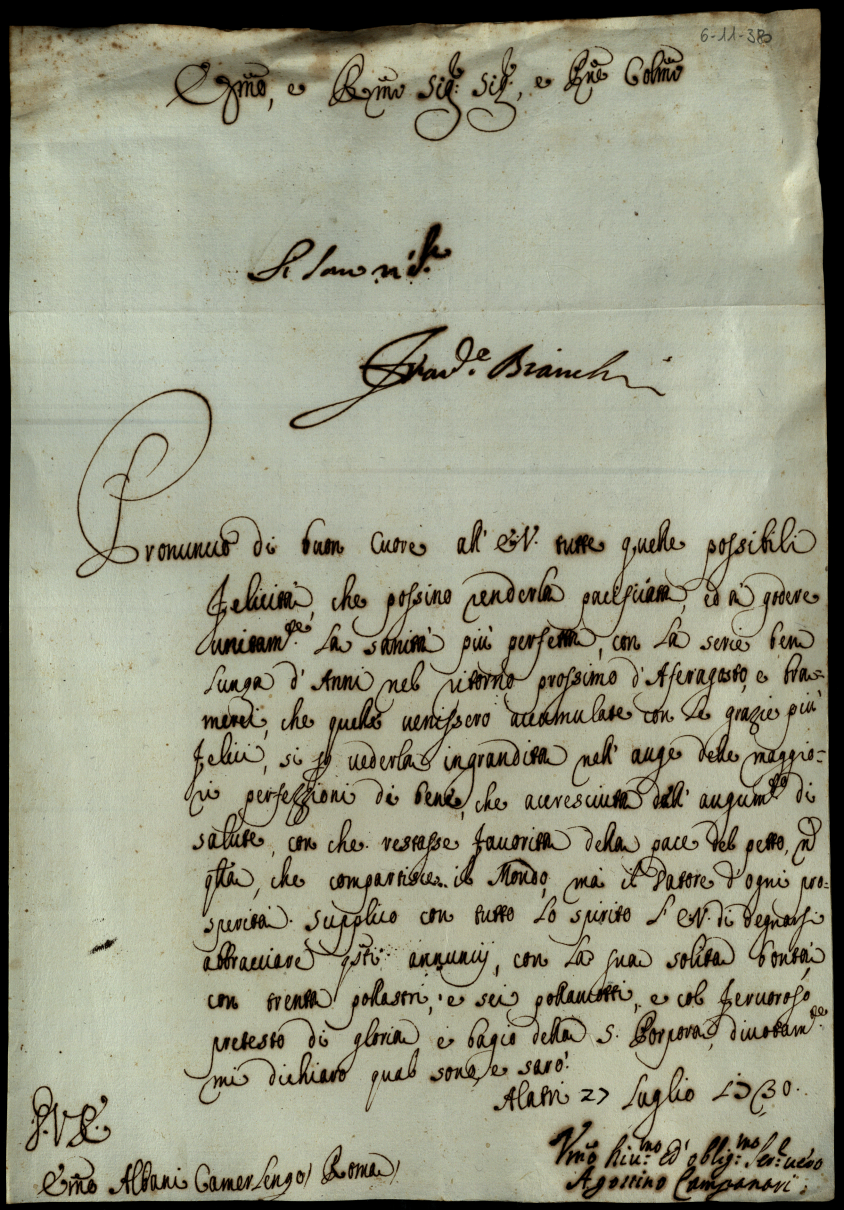 6-11-38
Em̃o, e Rm̃o Sig.r Sig.r, e Pñe Colm̃o
Bianchi
Pronuncio di buon Cuore all' E.V. tutte quelle possibili
felicità, che possino renderla pacifica, ed à godere
unitam.te La sanità più perfetta, con La serie ben
Lunga d'Anni nel ritorno prossimo d'Aferagosto, e bra=
merei, che quelle venissero accumulate con Le grazie più
felici, si p vederla ingrandita nell' auge delle maggio=
ri perfezzioni di bene, che accresciuta dall' augum.to di
salute, con che restasse favorita della pace del petto, nõ
q̃lla, che compartisce il Mondo, mà il Datore d'ogni pro=
sperità. Supplico con tutto Lo spirito L'E.V. di degnarsi
abbracciare q̃sti annuncij, con La sua solita bontà,
con trenta pollastri, e sei pollancotti, e col fervoroso
pretesto di gloria e bagio della S. Porpora, divotam.te
mi dichiaro qual sono, e sarò.
Alatri 27 Luglio 1730.
Vm̃o Div.mo ed oblig.mo Ser.e vero
Agostino Campanari
Em̃o Albani Camerlengo / Roma /